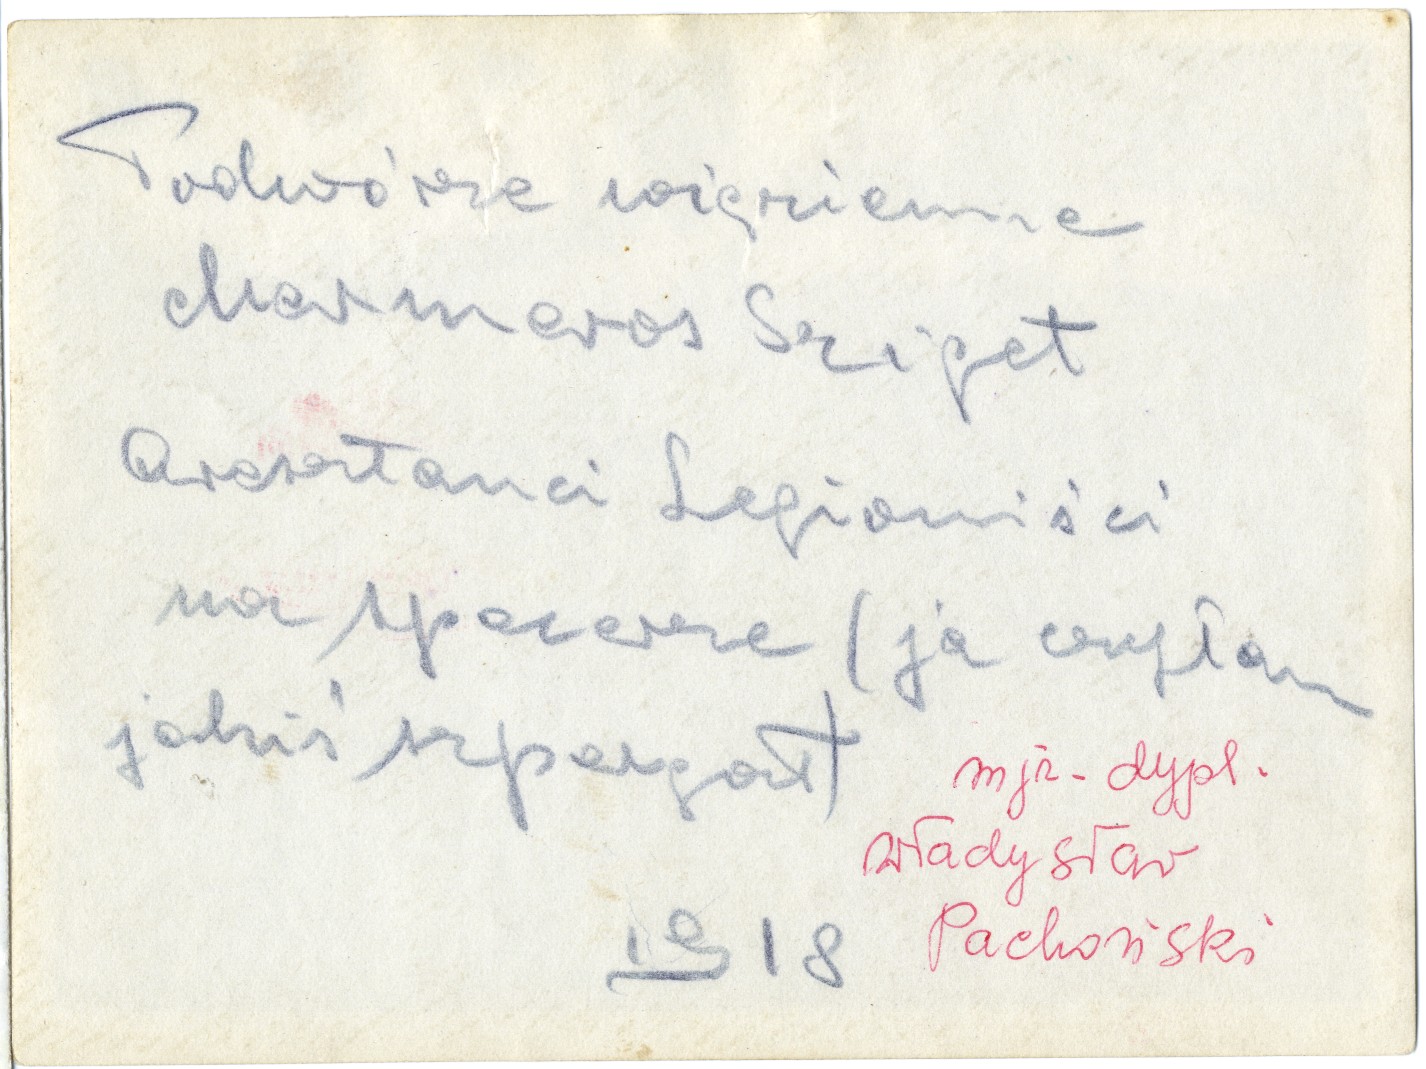 Podwórze więzienne
Marmaros Sziget
Aresztanci Legioniści
na spacerze (ja czytam
jakiś szpargał)
mjr. dypl.
Władysław
Pachoński
1918